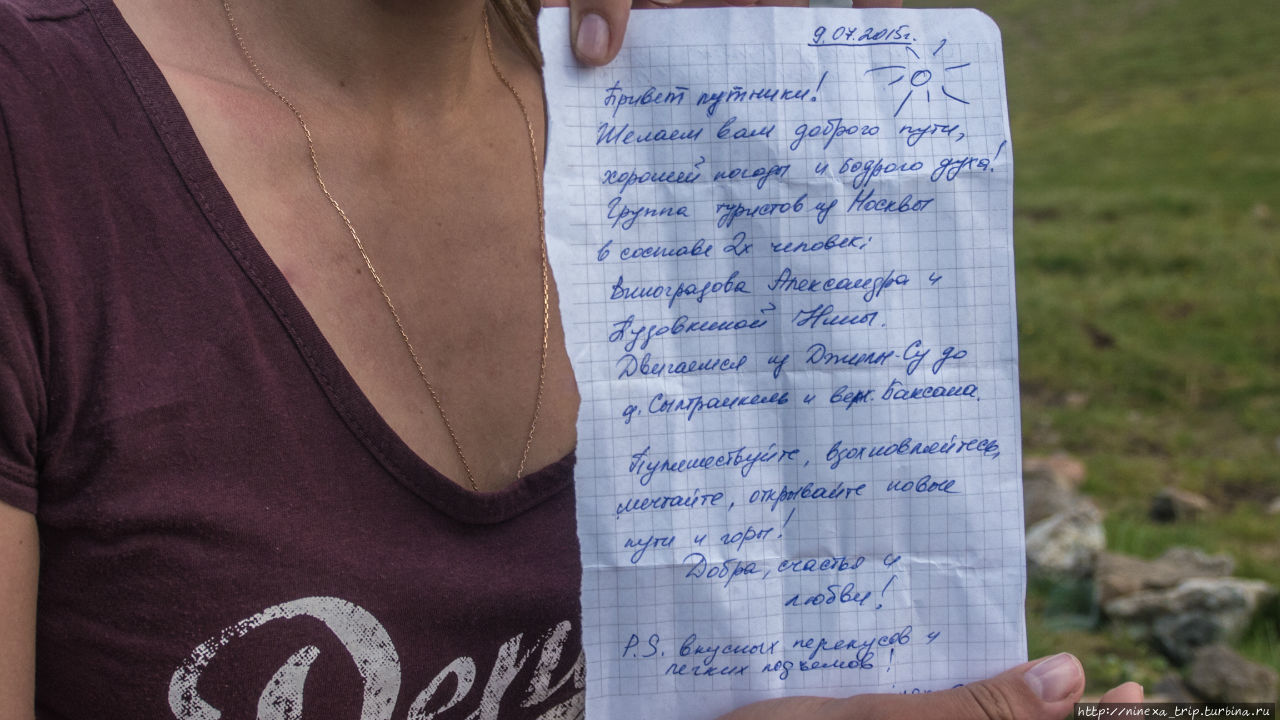 9.07.2015г.
Привет путники!
Желаем вам доброго пути,
хорошей погоды и бодрого духа!
Группа туристов из Москвы
в составе 2х человек:
Виноградова Александра и
Пудовкиной Нины.
Двигаемся из Джилы-Су до
д. Сылтранкель и верх. Баксана.
Путешествуйте, вдохновляйтесь,
мечтайте, открывайте новые
пути и горы!
Добра, счастья и
любви!
P.S. вкусных перекусов и
легких подъемов!
Den
http://ninexa_trip.turbina.ru